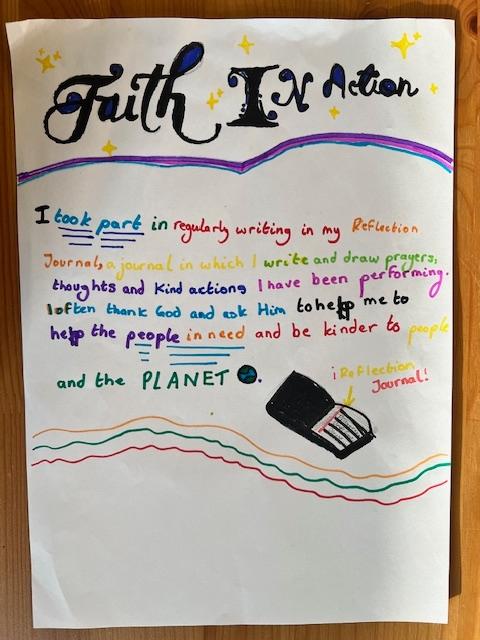 Faith In Action
I took part in regularly writing in my Reflection
Journal, a journal in which I write and draw prayers,
thoughts and kind actions I have been performing.
I often thank God and ask Him to help me to
help the people in need and be kinder to people
and the PLANET.
¡Reflection
Journal!